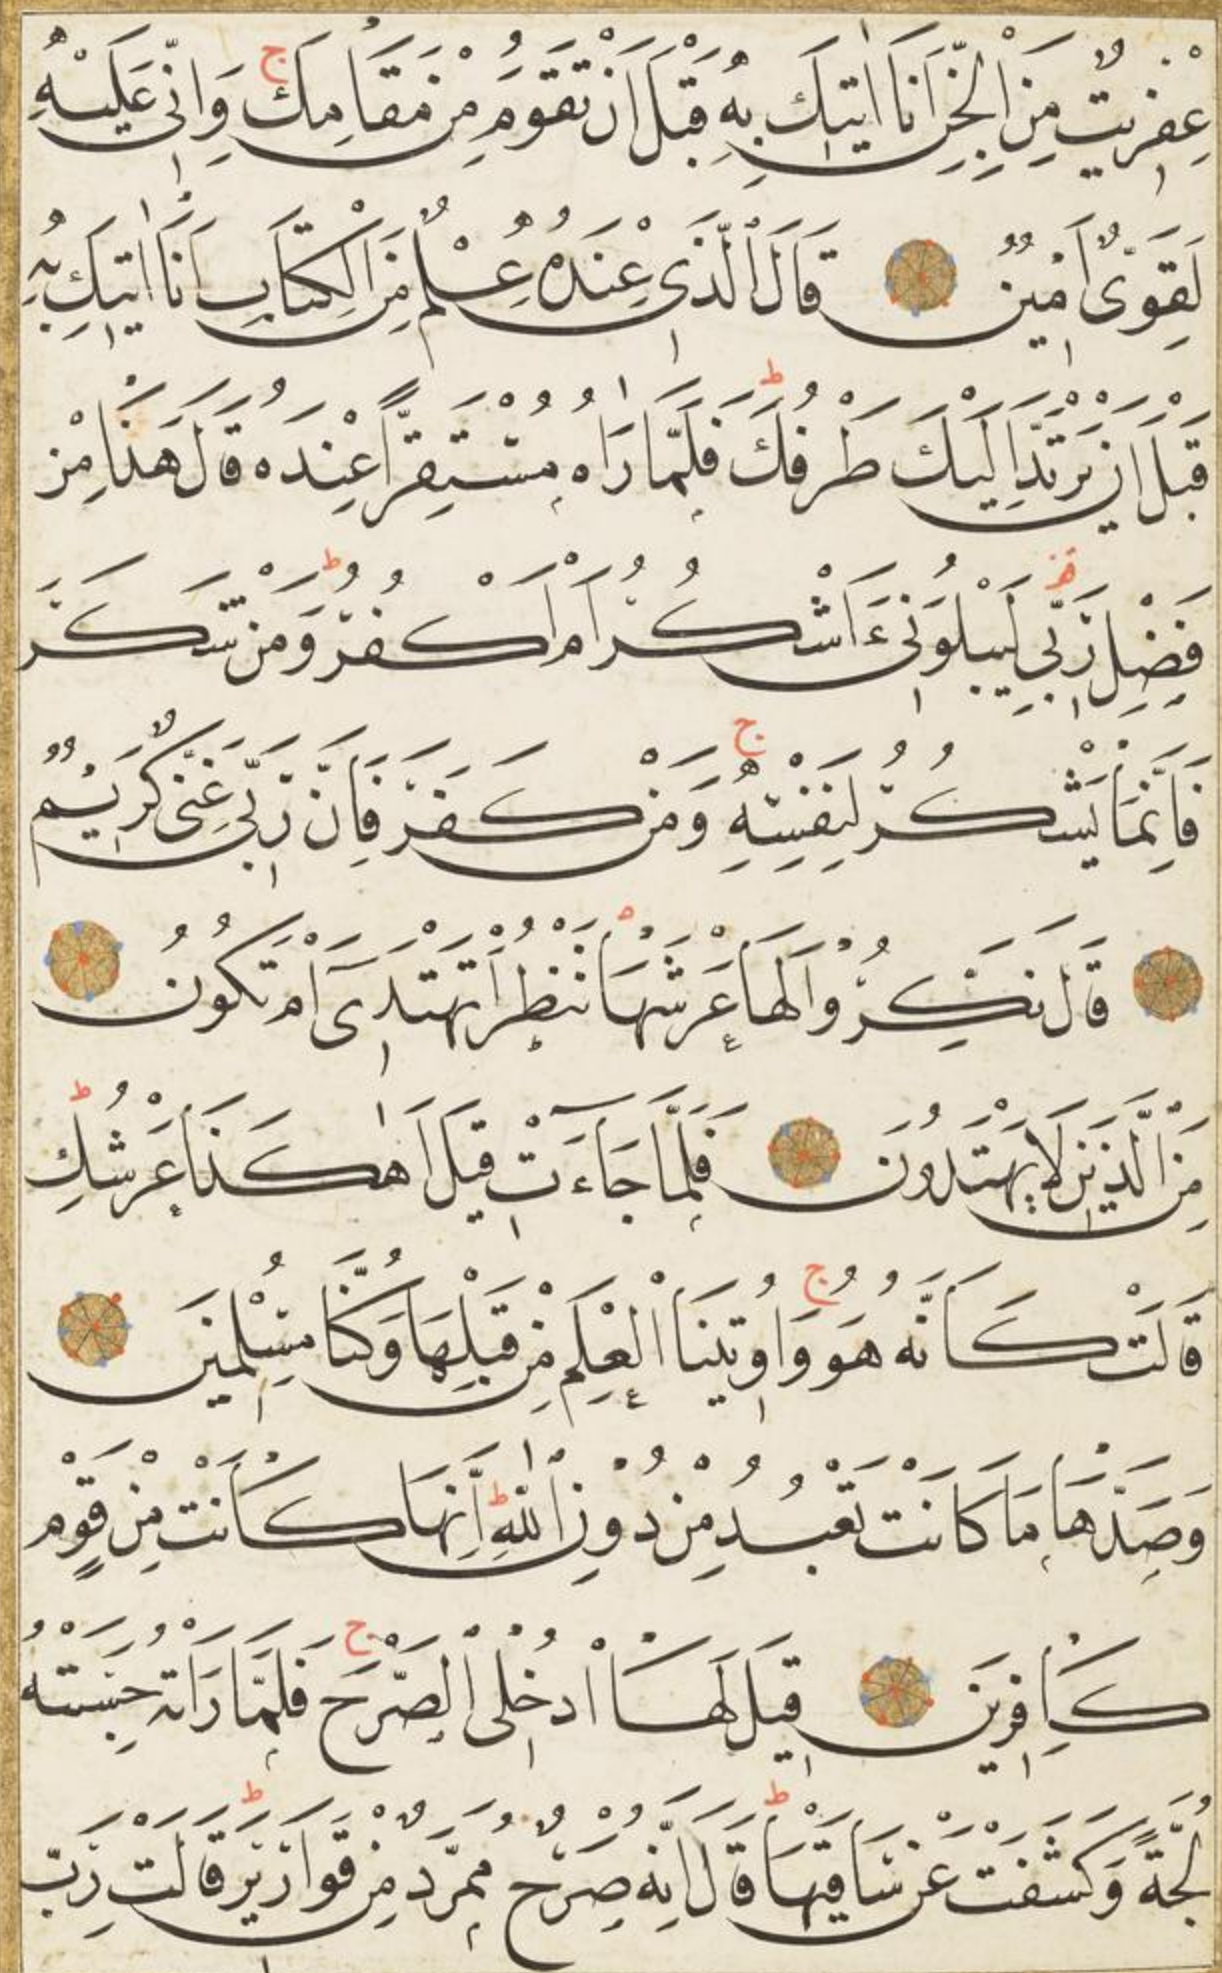 عِفْرِيتٌ مِنَ الْجِنِّ اَنَا اٰتِيكَ بِهٖ قَبْلَ اَنْ تَقُومَ مِنْ مَقَامِكَ ج وَاِنِّي عَلَيْهِ
لَقَوِىٌّ اَمِينٌ قَالَ الَّذِى عِنْدَهُ عِلْمٌ مِنَ الْكِتَابِ اَنَا اٰتِيكَ بِهٖ
قَبْلَ اَنْ يَرْتَدَّ اِلَيْكَ طَرْفُكَ ط فَلَمَّا رَاٰهُ مُسْتَقِرًّا عِنْدَهُ قَالَ هٰذَا مِنْ
فَضْلِ رَبِّي قف لِيَبْلُوَنِي ءَاَشْكُرُ اَمْ اَكْفُرُ ط وَمَنْ شَكَرَ
فَاِنَّمَا يَشْكُرُ لِنَفْسِهٖ ج وَمَنْ كَفَرَ فَاِنَّ رَبِّي غَنِيٌّ كَرِيمٌ
قَالَ نَكِّرُوا لَهَا عَرْشَهَا نَنْظُرْ اَتَهْتَدِى اَمْ تَكُونُ
مِنَ الَّذِينَ لَا يَهْتَدُونَ فَلَمَّا جَاءَتْ قِيلَ اَهٰكَذَا عَرْشُكِ ط
قَالَتْ كَاَنَّهُ هُوَ ج وَاُوتِينَا الْعِلْمَ مِنْ قَبْلِهَا وَكُنَّا مُسْلِمِينَ
وَصَدَّهَا مَا كَانَتْ تَعْبُدُ مِنْ دُونِ اللّٰهِ ط اِنَّهَا كَانَتْ مِنْ قَوْمٍ
كَافِرِينَ قِيلَ لَهَا ادْخُلِى الصَّرْحَ ج فَلَمَّا رَاَتْهُ حَسِبَتْهُ
لُجَّةً وَكَشَفَتْ عَنْ سَاقَيْهَا ط قَالَ اِنَّهُ صَرْحٌ مُمَرَّدٌ مِنْ قَوَارِيرَ ط قَالَتْ رَبِّ